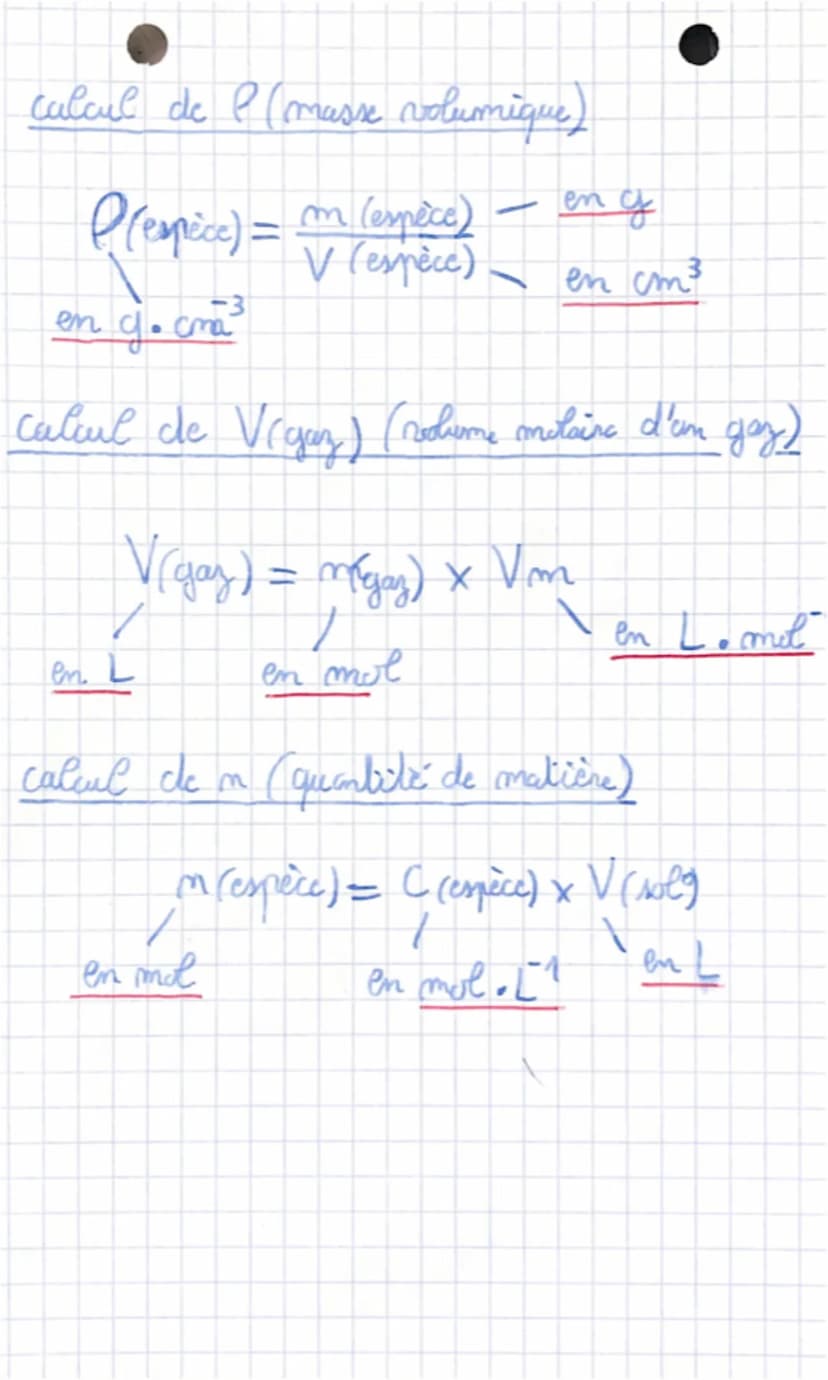 calcul de ρ (masse volumique)
ρ(espèce) = m (espèce) / V (espèce)
en g
en cm³
en g . cm⁻³
calcul de V(gaz) (volume molaire d'un gaz)
V(gaz) = n(gaz) × Vm
en L
en mol
en L . mol⁻
calcul de n (quantité de matière)
n(espèce) = C (espèce) × V (sol°)
en mol
en mol . L⁻¹
en L